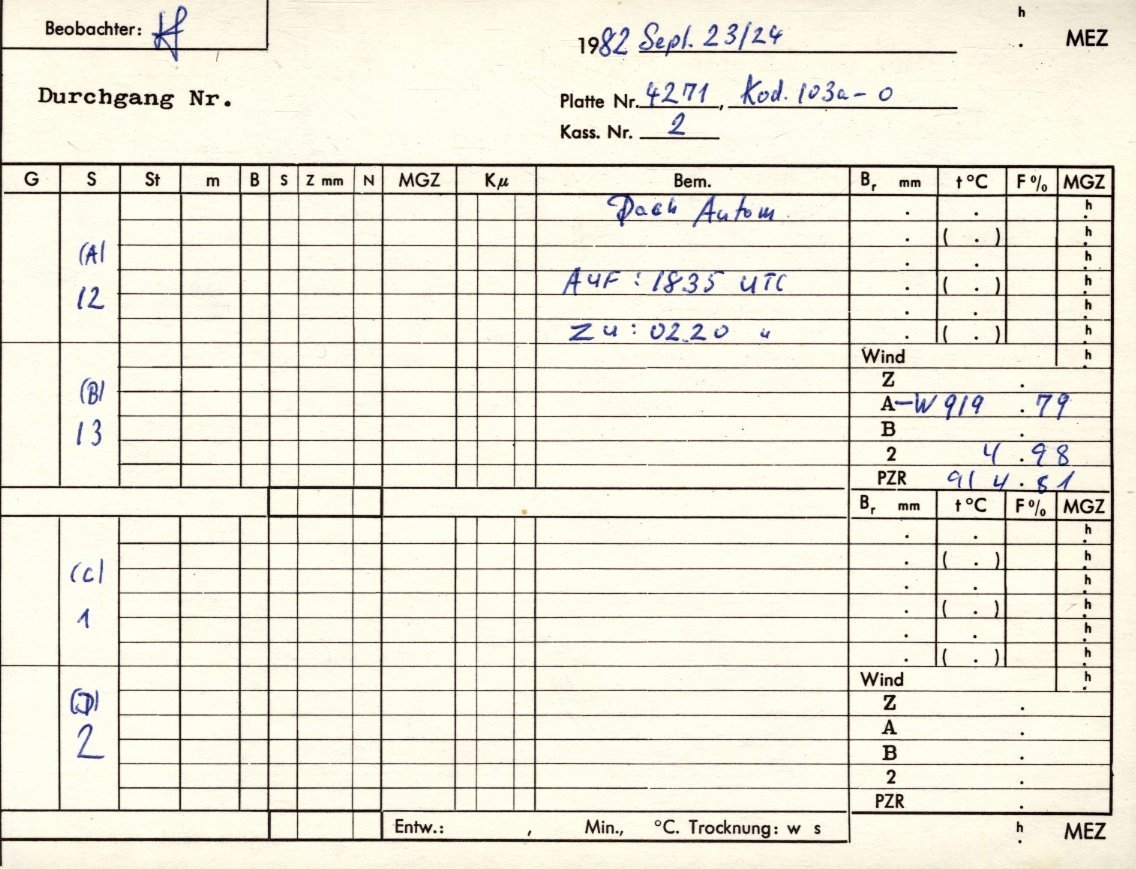 Beobachter: Kf
1982 Sept. 23/24
h . MEZ
Durchgang Nr.
Platte Nr. 4271, Kod. 103a-O
Kass. Nr. 2
G S St m B S Z mm N MGZ Kμ Bem. Br mm t °C F % MGZ
Dach Autom. . . h
. ( . ) h
(A) . . h
12 Auf : 18 35 UTC . ( . ) h
. . h
Zu : 02.20 " . ( . ) h
Wind h
Z .
(B) A-W 919 . 79
13 B .
2 4 . 98
PZR 914 . 81
Br mm t °C F % MGZ
. . h
. ( . ) h
(C) . . h
1 . ( . ) h
. . h
. ( . ) h
Wind h
(D) Z .
A .
2 B .
2 .
PZR .
Entw.: , Min., °C. Trocknung: w s
h . MEZ